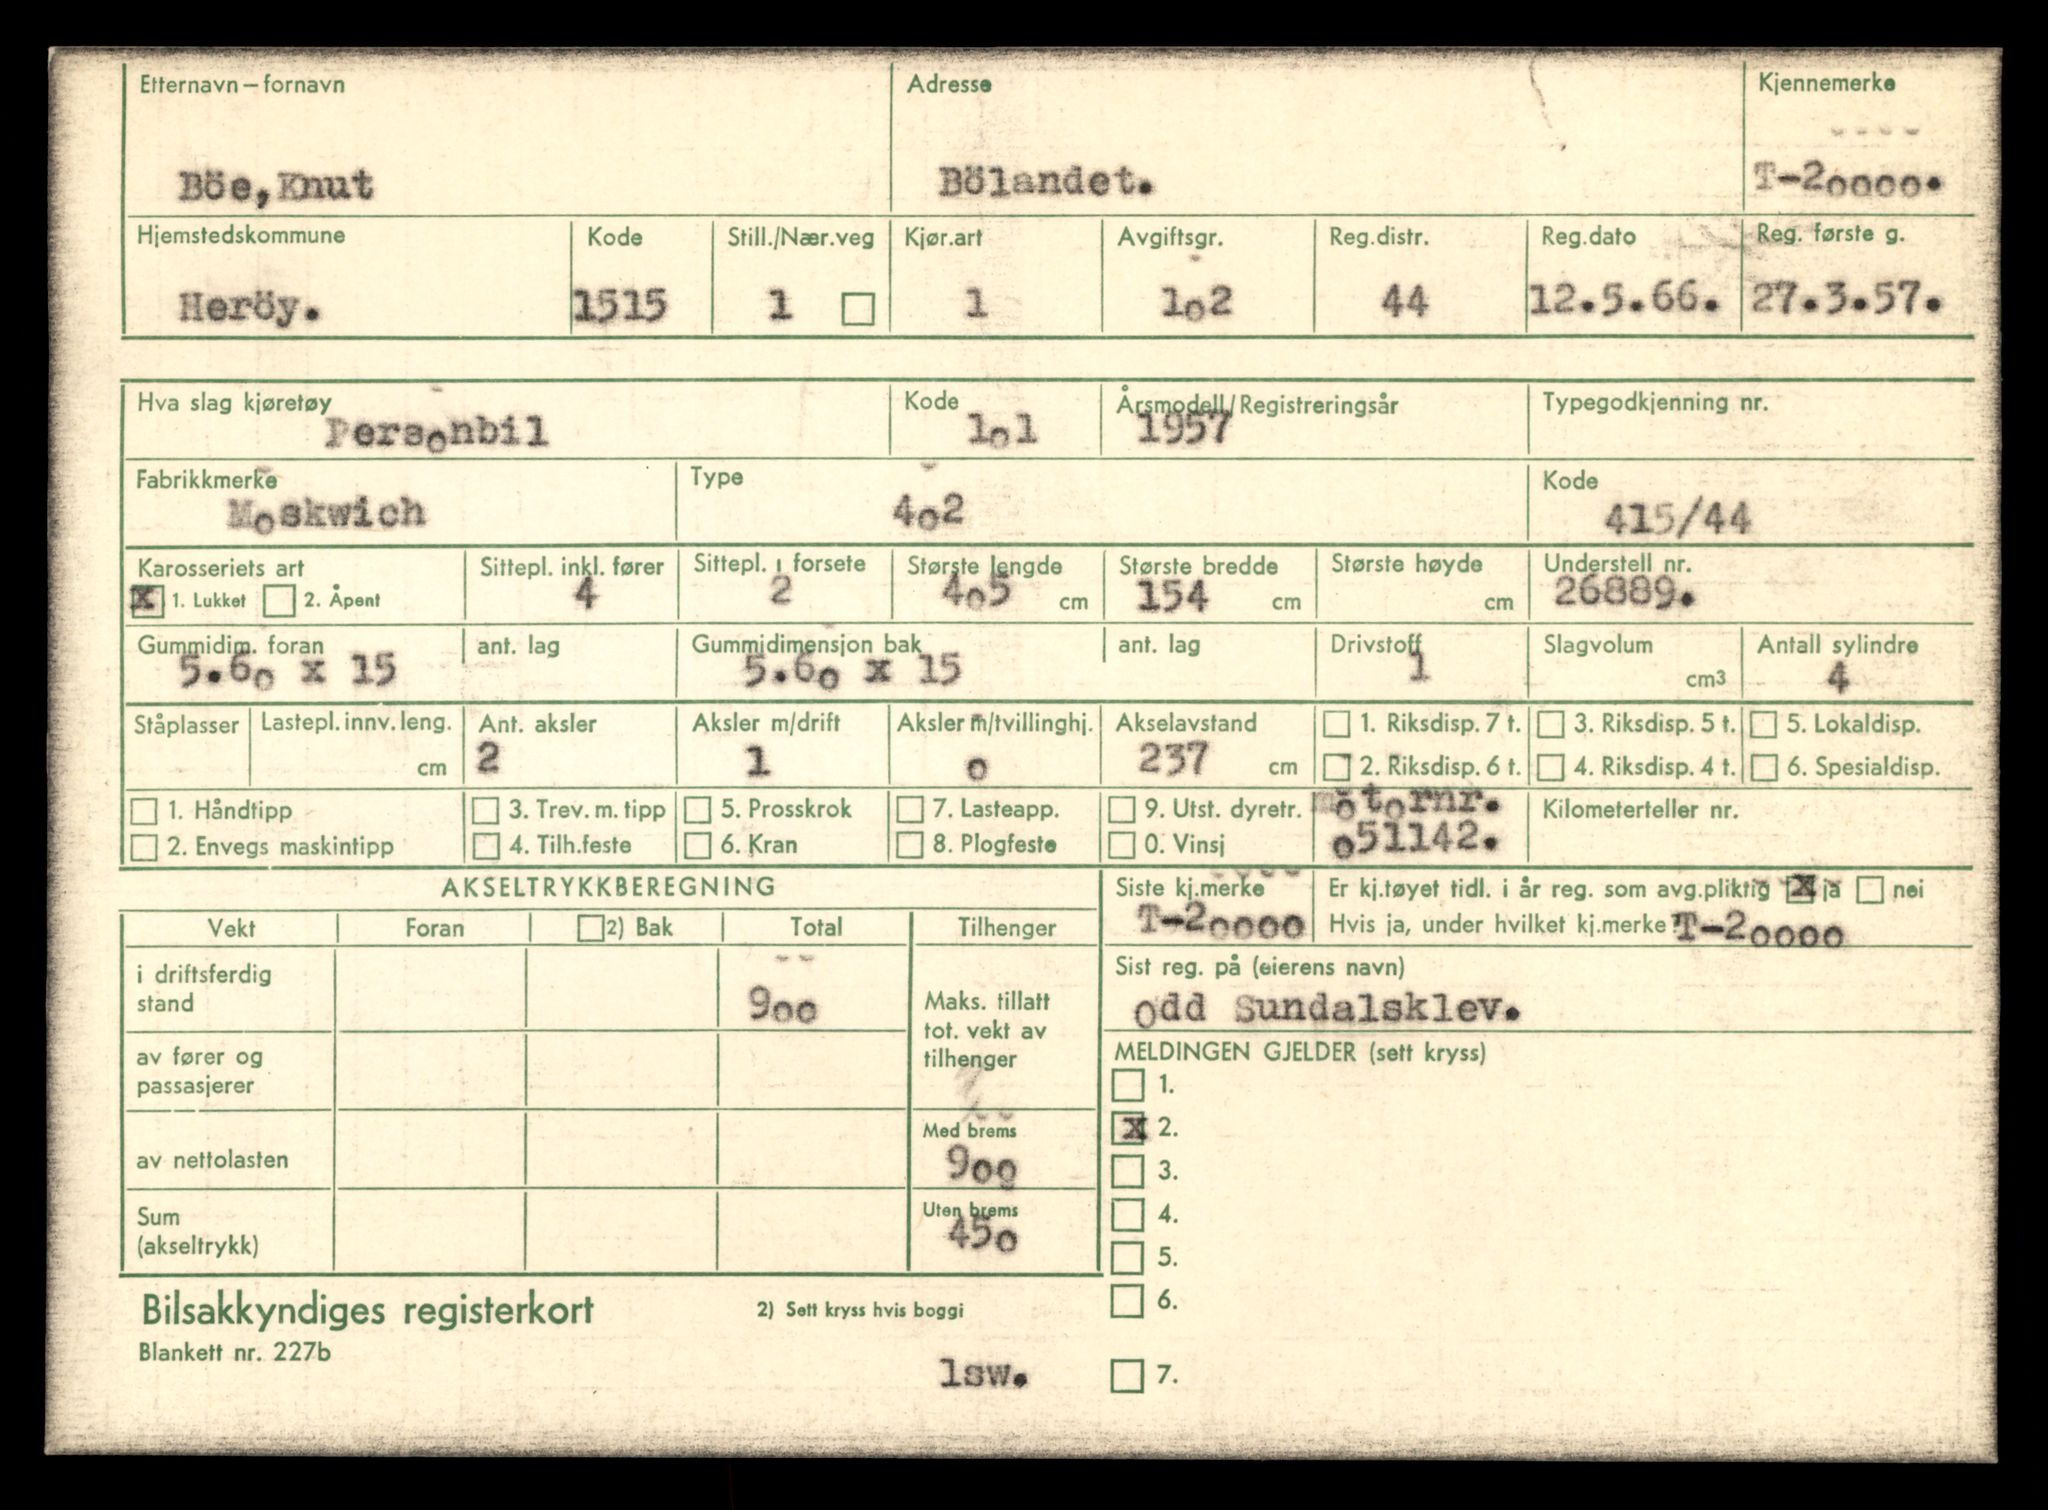 Etternavn – fornavn Adresse Kjennemerke
Böe, Knut Bölandet. T-20000.
Hjemstedskommune Kode Still./Nær.veg Kjør.art Avgiftsgr. Reg.distr. Reg.dato Reg. første g.
Heröy. 1515 1 1 102 44 12.5.66. 27.3.57.
Hva slag kjøretøy Kode Årsmodell/Registreringsår Typegodkjenning nr.
Personbil 101 1957
Fabrikkmerke Type Kode
Moskwich 402 415/44
Karosseriets art Sittepl. inkl. fører Sittepl. i forsete Største lengde Største bredde Største høyde Understell nr.
X 1. Lukket 2. Åpent 4 2 405 cm 154 cm cm 26889.
Gummidim. foran ant. lag Gummidimensjon bak ant. lag Drivstoff Slagvolum Antall sylindre
5.60 x 15 5.60 x 15 1 cm3 4
Ståplasser Lastepl. innv. leng. Ant. aksler Aksler m/drift Aksler m/tvillinghj. Akselavstand 1. Riksdisp. 7 t. 3. Riksdisp. 5 t. 5. Lokaldisp.
cm 2 1 0 237 cm 2. Riksdisp. 6 t. 4. Riksdisp. 4 t. 6. Spesialdisp.
1. Håndtipp 3. Trev. m. tipp 5. Prosskrok 7. Lasteapp. 9. Utst. dyretr. motornr. Kilometerteller nr.
2. Envegs maskintipp 4. Tilh.feste 6. Kran 8. Plogfeste 0. Vinsj 051142.
AKSELTRYKKBEREGNING Siste kj.merke Er kj.tøyet tidl. i år reg. som avg.pliktig X ja nei
Vekt Foran 2) Bak Total Tilhenger T-20000 Hvis ja, under hvilket kj.merke? T-20000
i driftsferdig stand 900 Maks. tillatt tot. vekt av tilhenger Sist reg. på (eierens navn)
Odd Sundalsklev.
av fører og passasjerer MELDINGEN GJELDER (sett kryss)
1.
av nettolasten Med brems 900 X 2.
3.
Sum (akseltrykk) Uten brems 450 4.
5.
Bilsakkyndiges registerkort 2) Sett kryss hvis boggi 6.
Blankett nr. 227b
lsw. 7.